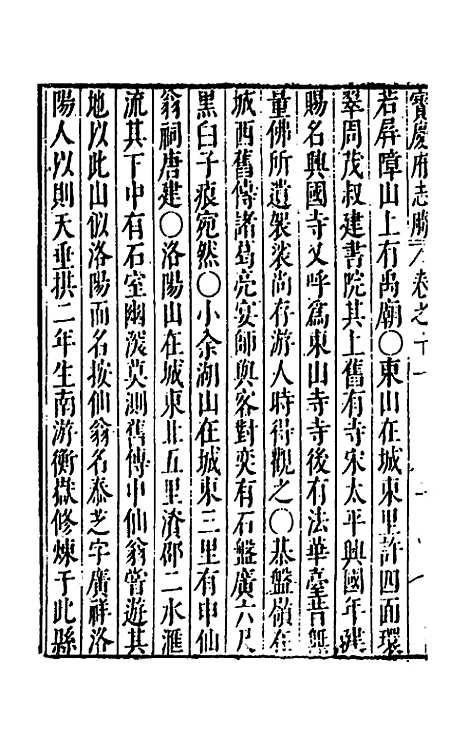 寶慶府志勝 卷之十一
若屏障山上有禹廟〇東山在城東里許四面環
翠周茂叔建書院其上舊有寺宋太平興國年建
賜名興國寺又呼爲東山寺寺後有法華臺昔無
量佛所遺袈裟尚存游人時得觀之〇棊盤嶺在
城西舊傳諸葛亮宴師與客對奕有石盤廣六尺
黑白子痕宛然〇小余湖山在城東三里有申仙
翁祠唐建〇洛陽山在城東北五里資邵二水滙
流其下中有石室幽深莫測舊傳申仙翁嘗遊其
地以此山似洛陽而名按仙翁名泰芝字廣祥洛
陽人以則天垂拱二年生南游衡嶽修煉于此縣